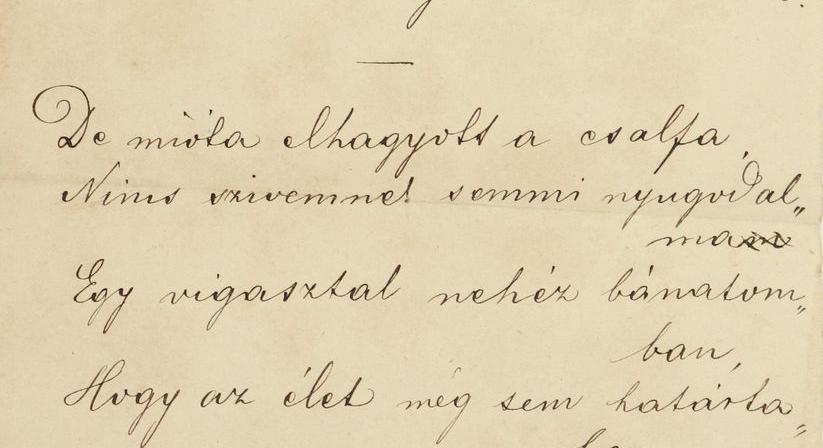 De mióta elhagyott a csalfa,
Nincs szivemnek semmi nyugodal„
mam
Egy vigasztal nehéz bánatom„
ban,
Hogy az élet még sem határta„